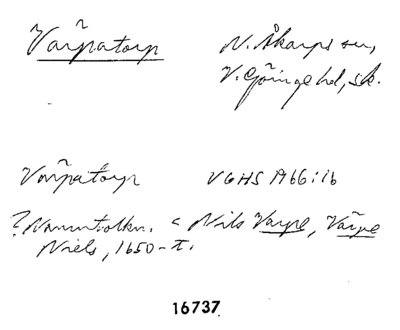 Varpatorp N. Åkarps sn,
V. Göinge hd, sk.
Varpatorp VGHS A66:16
? Namntolkn. < Nils Varpe, Varpe
Niels, 1650-t.
16737